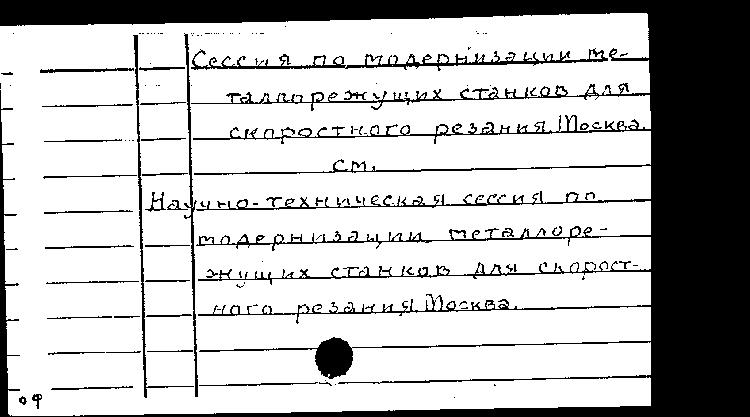 Сессия по модернизации ме-
таллорежущих станков для
скоростного резания. Москва.
см.
Научно-техническая сессия по
модернизации металлоре-
жущих станков для скорост-
ного резания. Москва.